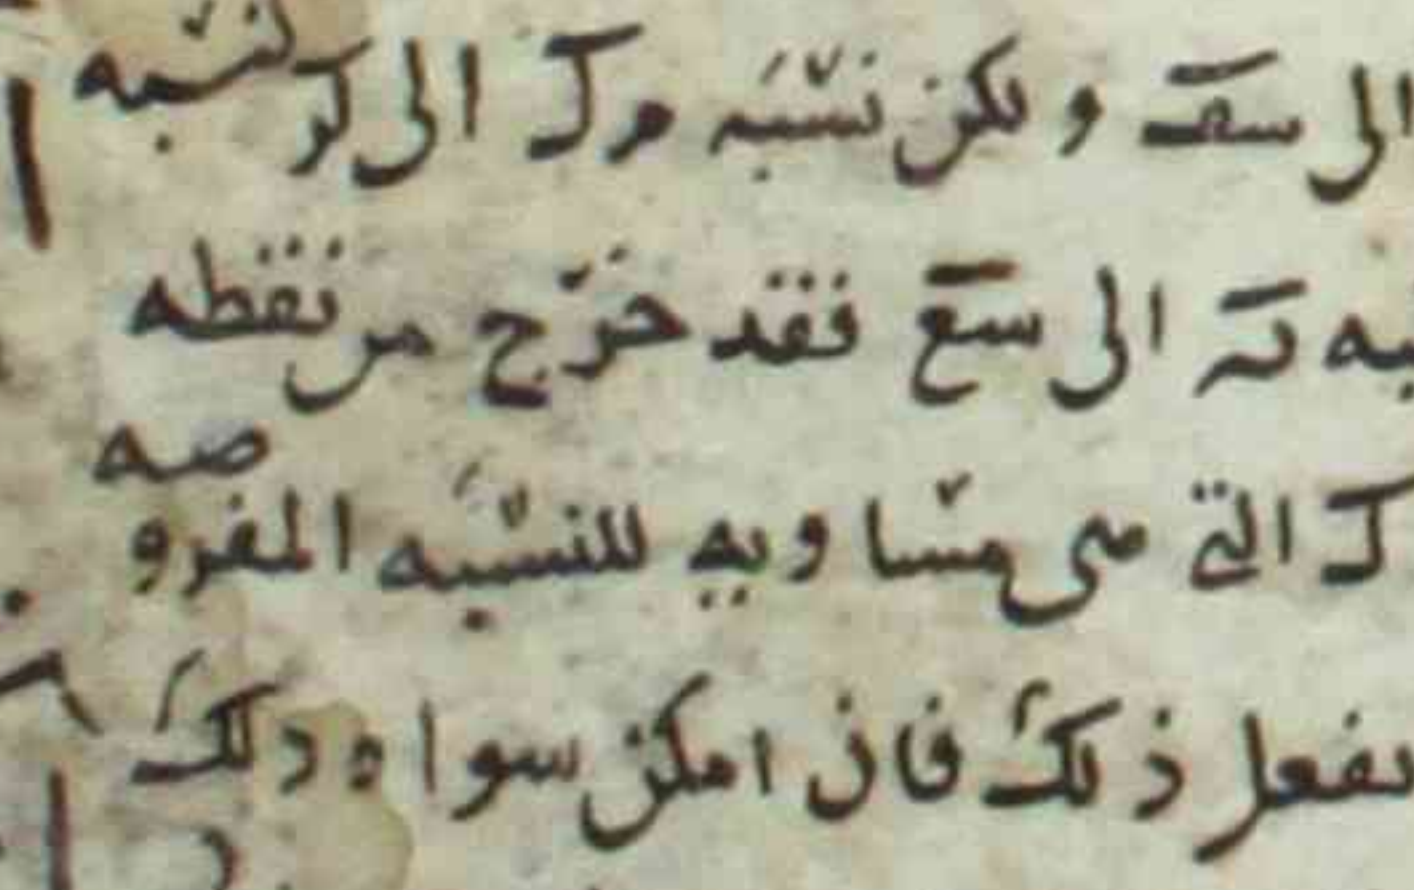 الى سف ولكن نسبه مرك الى كر كنسبه
به ته الى سع فقد خرج من نقطه
ك التي هي مساويه للنسبه المفروضه
نفعل ذلك فان امكن سواه ذلك